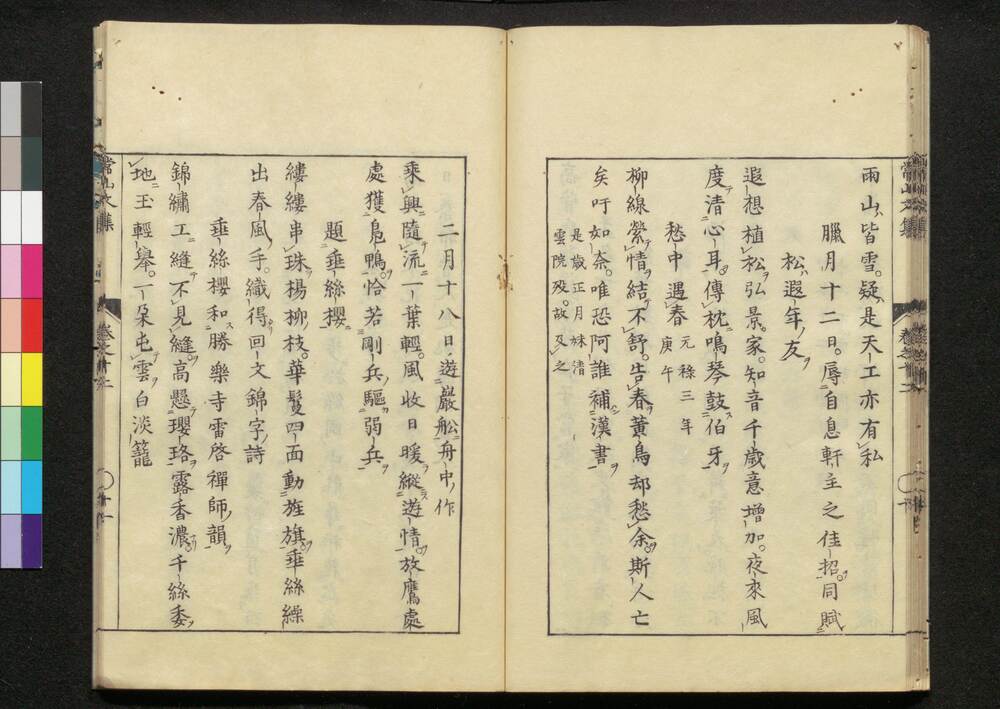 兩山皆雪。疑是天工亦有私
臘月十二日。辱自息軒主之佳招。同賦
松遐年友
遐想植松弘景。家。知音千歲意增加。夜來風
度清心耳。傳枕鳴琴鼓伯牙
愁中遇春 元祿三年 庚午
柳線縈情結不舒。告春黃鳥却愁余。斯人亡
矣吁如奈。唯恐阿誰補漢書
是歲正月妹清
雲院歿。故及之
二月十八日。遊巖舩舟中作
乘興隨流一葉輕。風收日暖縱遊情。放鷹處
處獲鳧鴨。恰若剛兵驅弱兵
題垂絲櫻
縷縷串珠楊柳枝。華鬘四面動旌旗。垂絲繰
出春風手。織得回文錦字詩
垂絲櫻和勝樂寺雷啓禪師韻
錦繡工縫不見縫。高懸瓔珞露香濃。千絲委
地玉輕舉。一朶屯雲白淡籠
常山文集